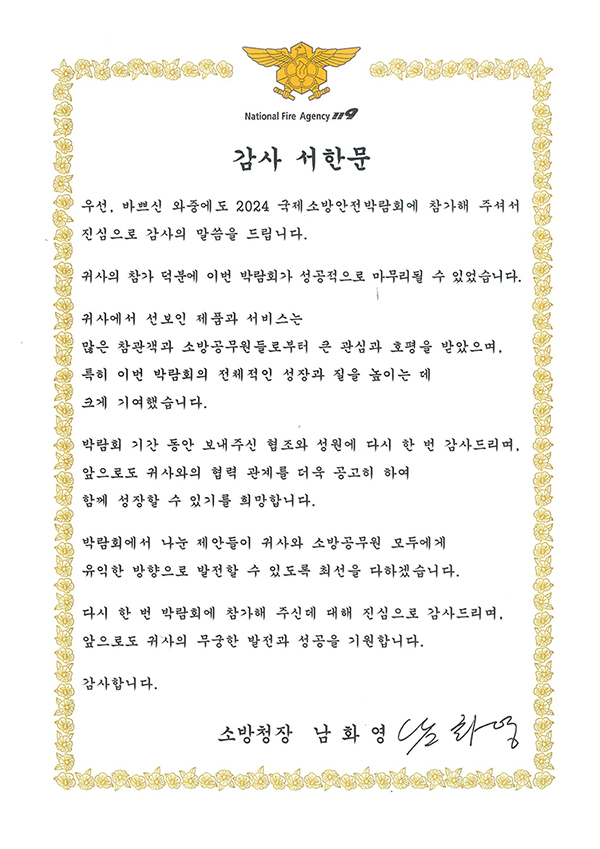 National Fire Agency 119
감사 서한문
우선, 바쁘신 와중에도 2024 국제소방안전박람회에 참가해 주셔서
진심으로 감사의 말씀을 드립니다.
귀사의 참가 덕분에 이번 박람회가 성공적으로 마무리될 수 있었습니다.
귀사에서 선보인 제품과 서비스는
많은 참관객과 소방공무원들로부터 큰 관심과 호평을 받았으며,
특히 이번 박람회의 전체적인 성장과 질을 높이는 데
크게 기여했습니다.
박람회 기간 동안 보내주신 협조와 성원에 다시 한 번 감사드리며,
앞으로도 귀사와의 협력 관계를 더욱 공고히 하여
함께 성장할 수 있기를 희망합니다.
박람회에서 나눈 제안들이 귀사와 소방공무원 모두에게
유익한 방향으로 발전할 수 있도록 최선을 다하겠습니다.
다시 한 번 박람회에 참가해 주신데 대해 진심으로 감사드리며,
앞으로도 귀사의 무궁한 발전과 성공을 기원합니다.
감사합니다.
소방청장 남화영 남화영